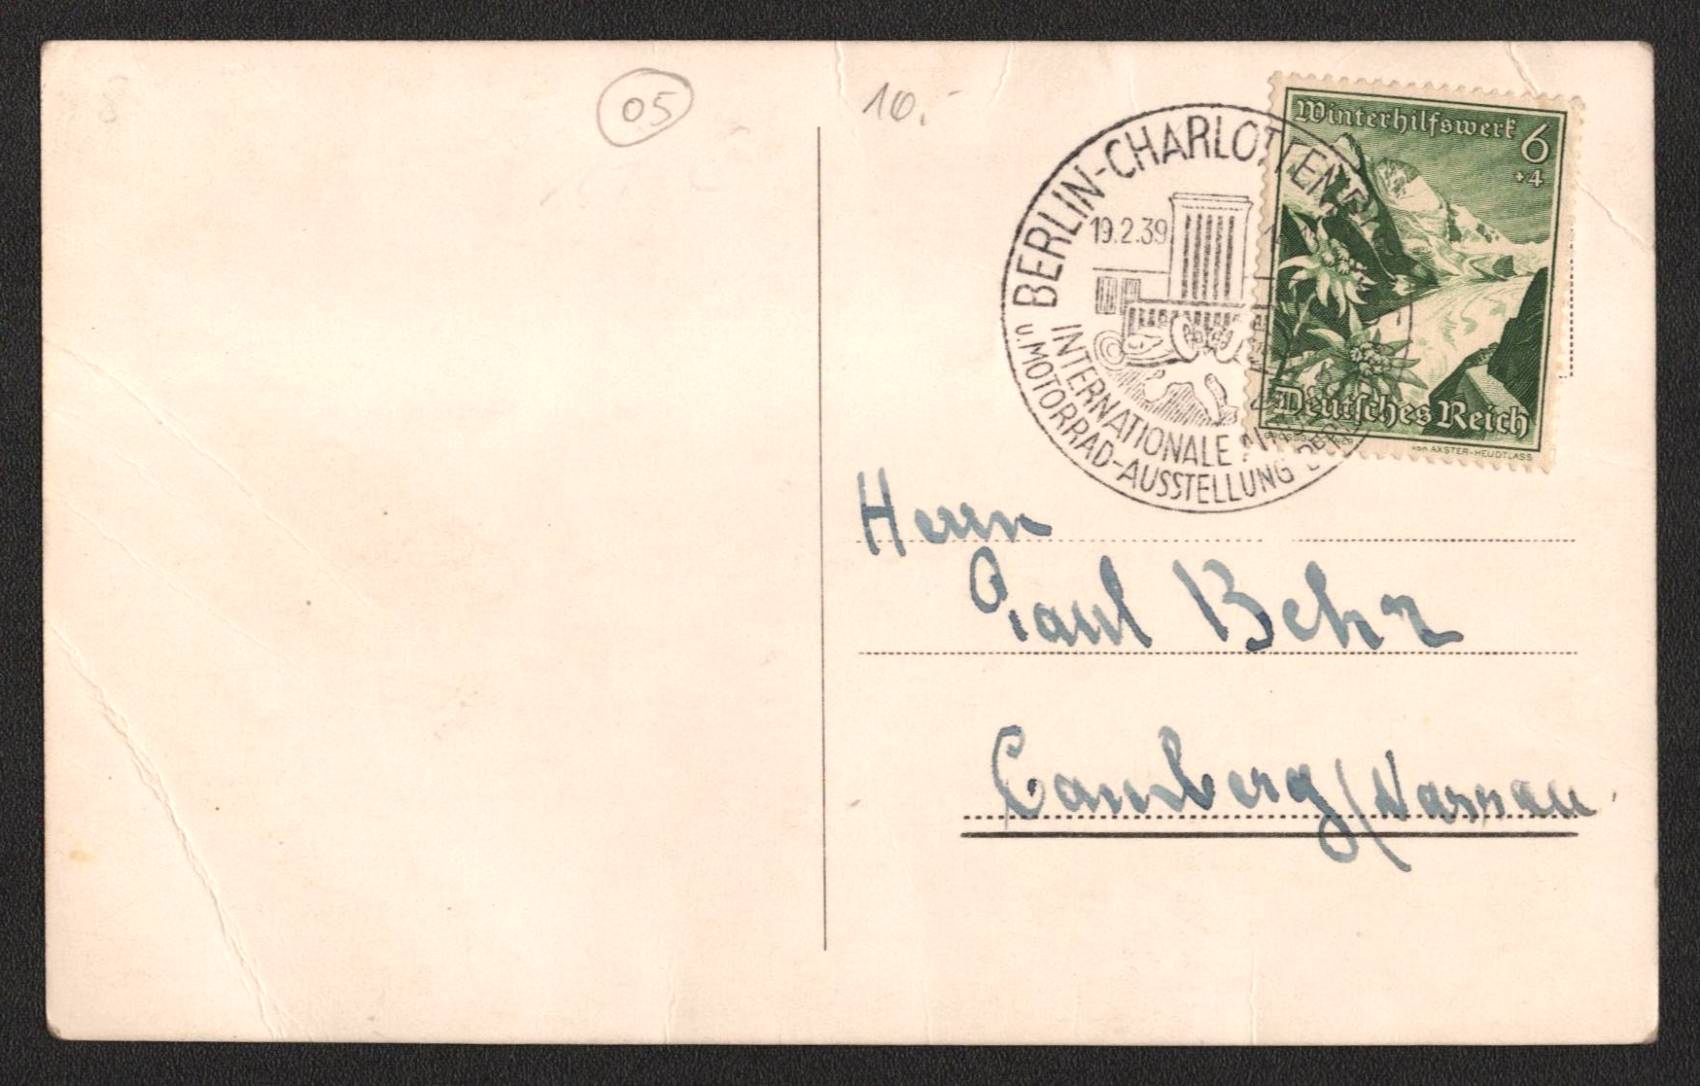 05
10.-
BERLIN-CHARLOTTENB
19.2.39
INTERNATIONALE
u. MOTORRAD-AUSSTELLUNG
Winterhilfswerk
6
+4
Deutsches Reich
von AXSTER-HEUDTLASS
Herrn
Paul Behr
Camberg/Nassau